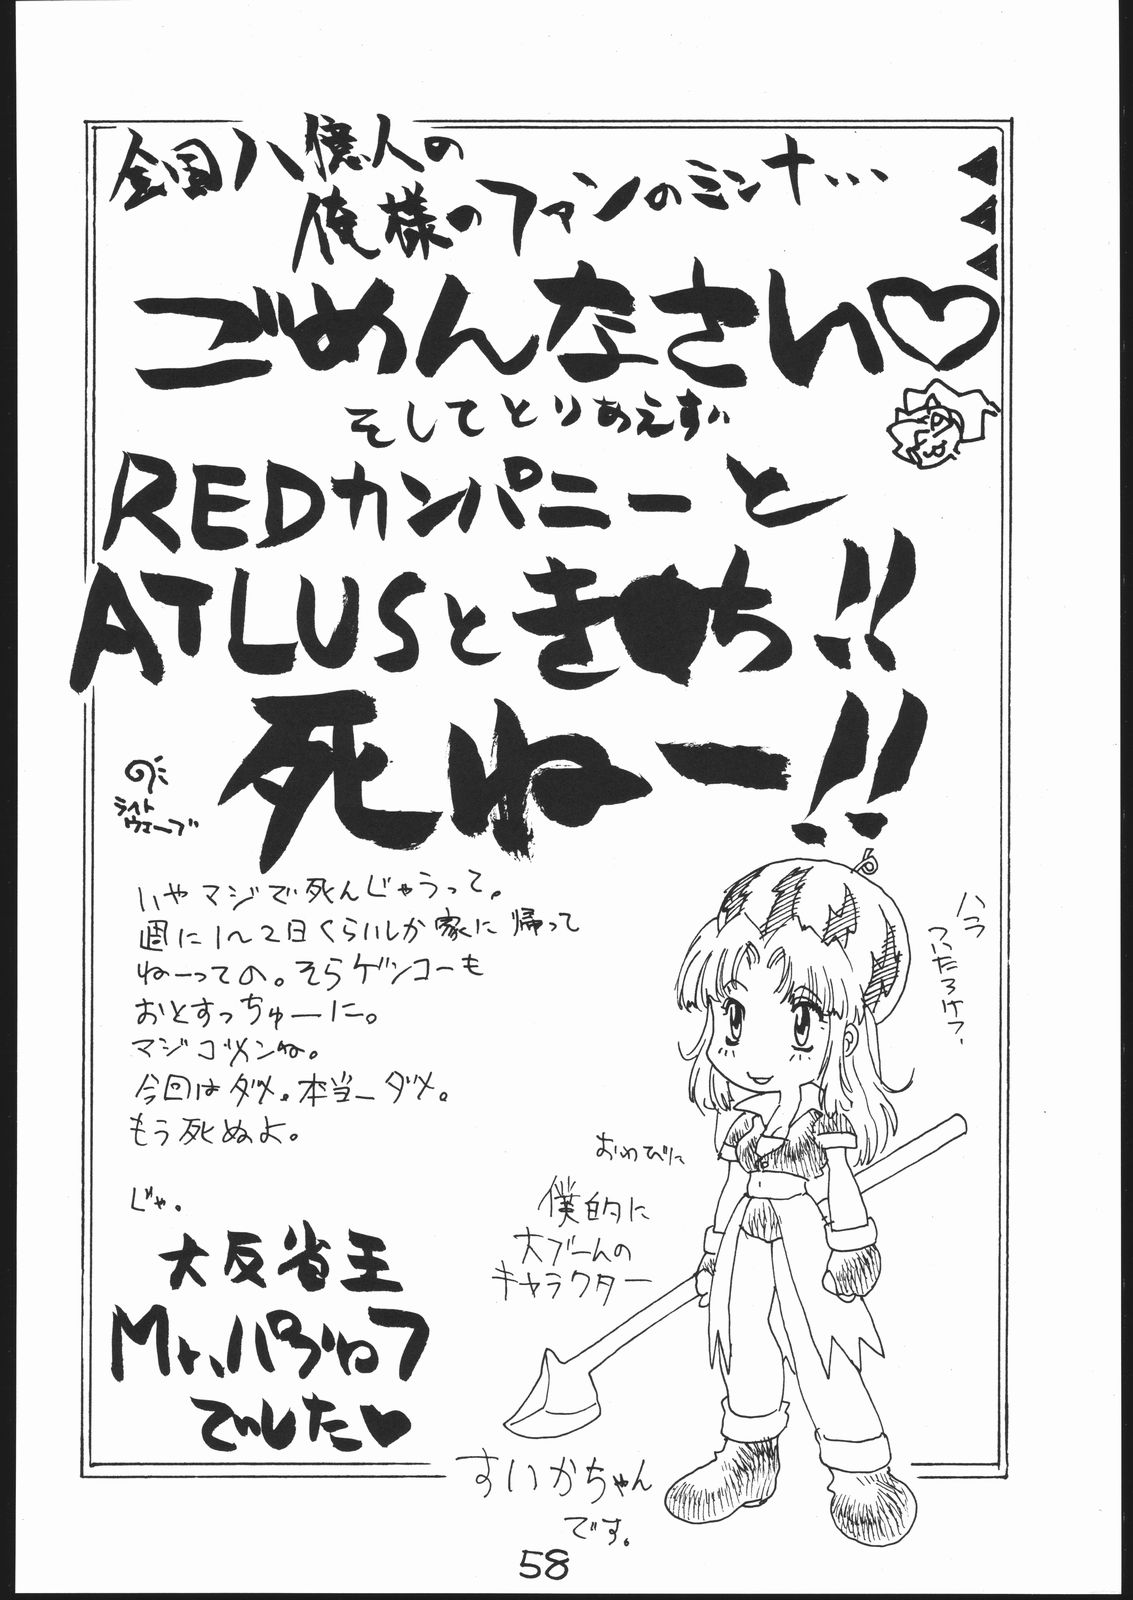 全国八億人の
俺様のファンのミンナ...
ごめんなさい♡
そしてとりあえず
REDカンパニーと
ATLUSとき●ち!!
死ねー!!
ライト
ウェーブ
いやマジで死んじゃうって。
週に1〜2日くらいしか家に帰って
ねーっての。そらゲンコーも
おとすっちゅーに。
マジゴメンね。
今回はダメ。本当ーダメ。
もう死ぬよ。
じゃ。
大反省王
Mr.パブロフ
でした♥
ハラ
おわびに
僕的に
大ブームの
キャラクター
すいかちゃん
です。
58